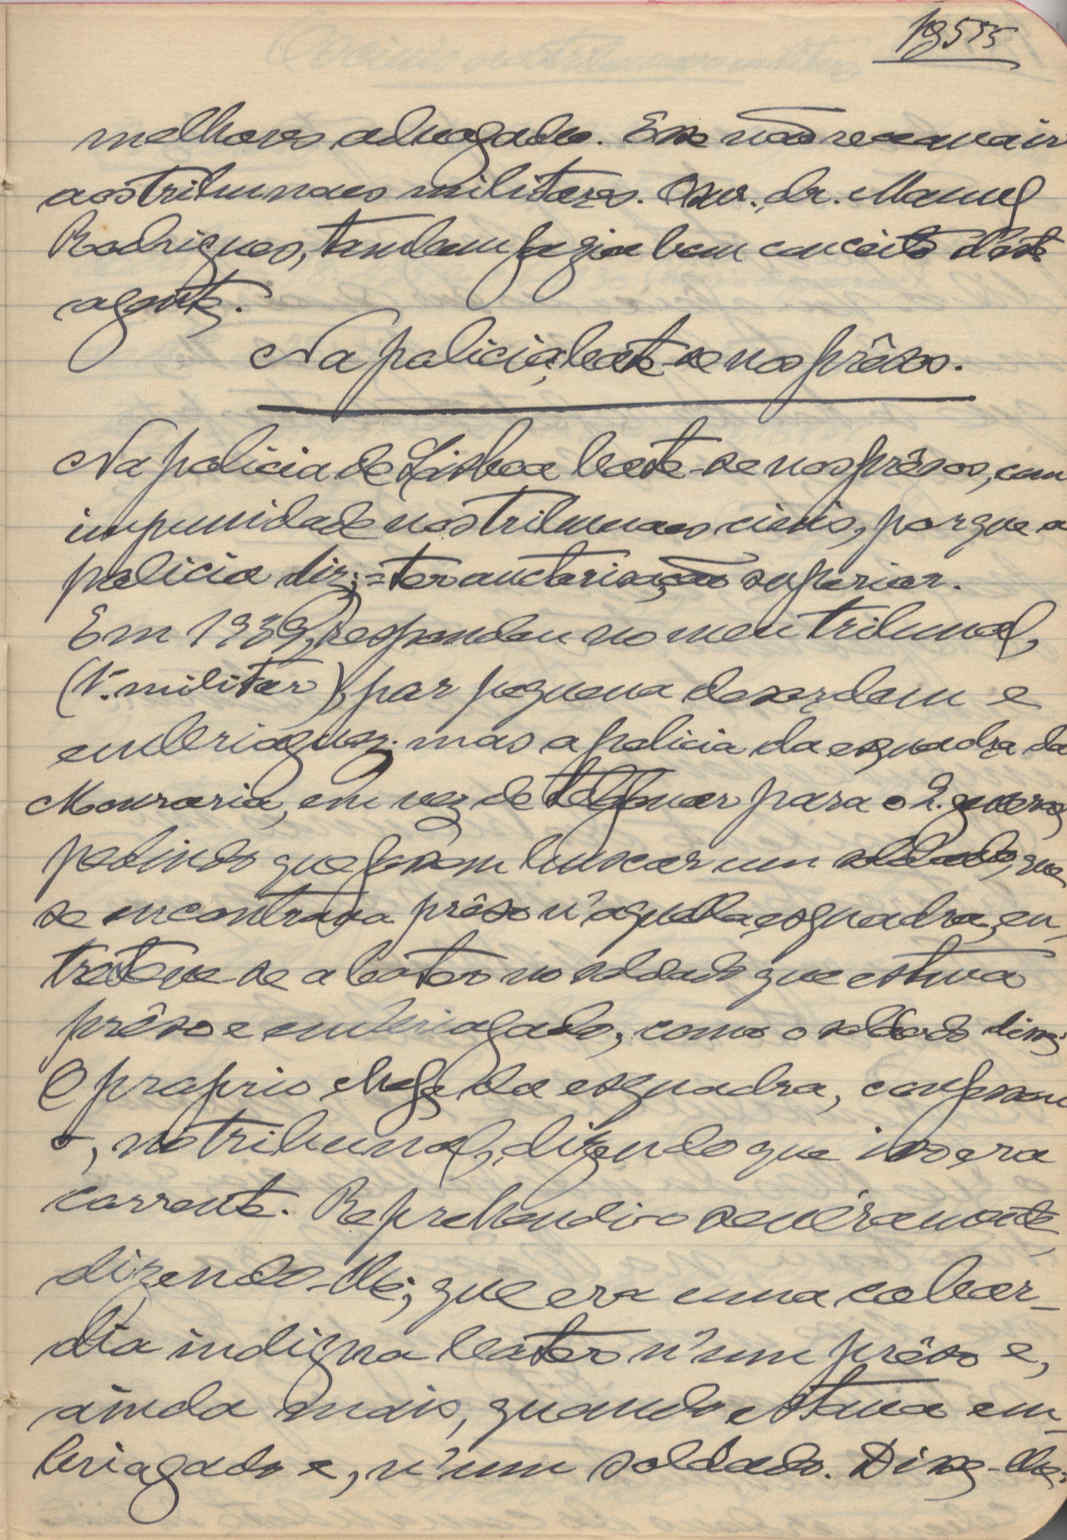 pg 555
melhores advogados. Esse não receava ir
aos tribunaes militares. O snr. dr. Manuel
Rodrigues, tambem fazia bom conceito d'este
agente.
Na policia, bate-se nos prêsos.
Na policia de Lisboa bate-se nos prêsos, com
impunidade nos tribunaes civis, porque a
policia diz: ter auctorisação superior.
Em 1939, respondeu no meu tribunal,
(1.º militar), por pequena desordem e
embriaguez. mas a policia da esquadra da
Mouraria, em vez de telefonar para o 2.
pedindo que fossem buscar um soldado, que
se encontrava prêso n'aquella esquadra, en-
treteve-se a bater no soldado que estava
prêso e embriagado, como o soldado disse.
O proprio chefe da esquadra, confessou-
o, no tribunal, dizendo que isso era
corrente. Reprehendi-o sevéramente,
dizendo-lhe; que era uma cobar-
dia indigna bater n'um prêso e,
ainda mais, quando estava em-
briagado e, n'um soldado. Disse-lhe: